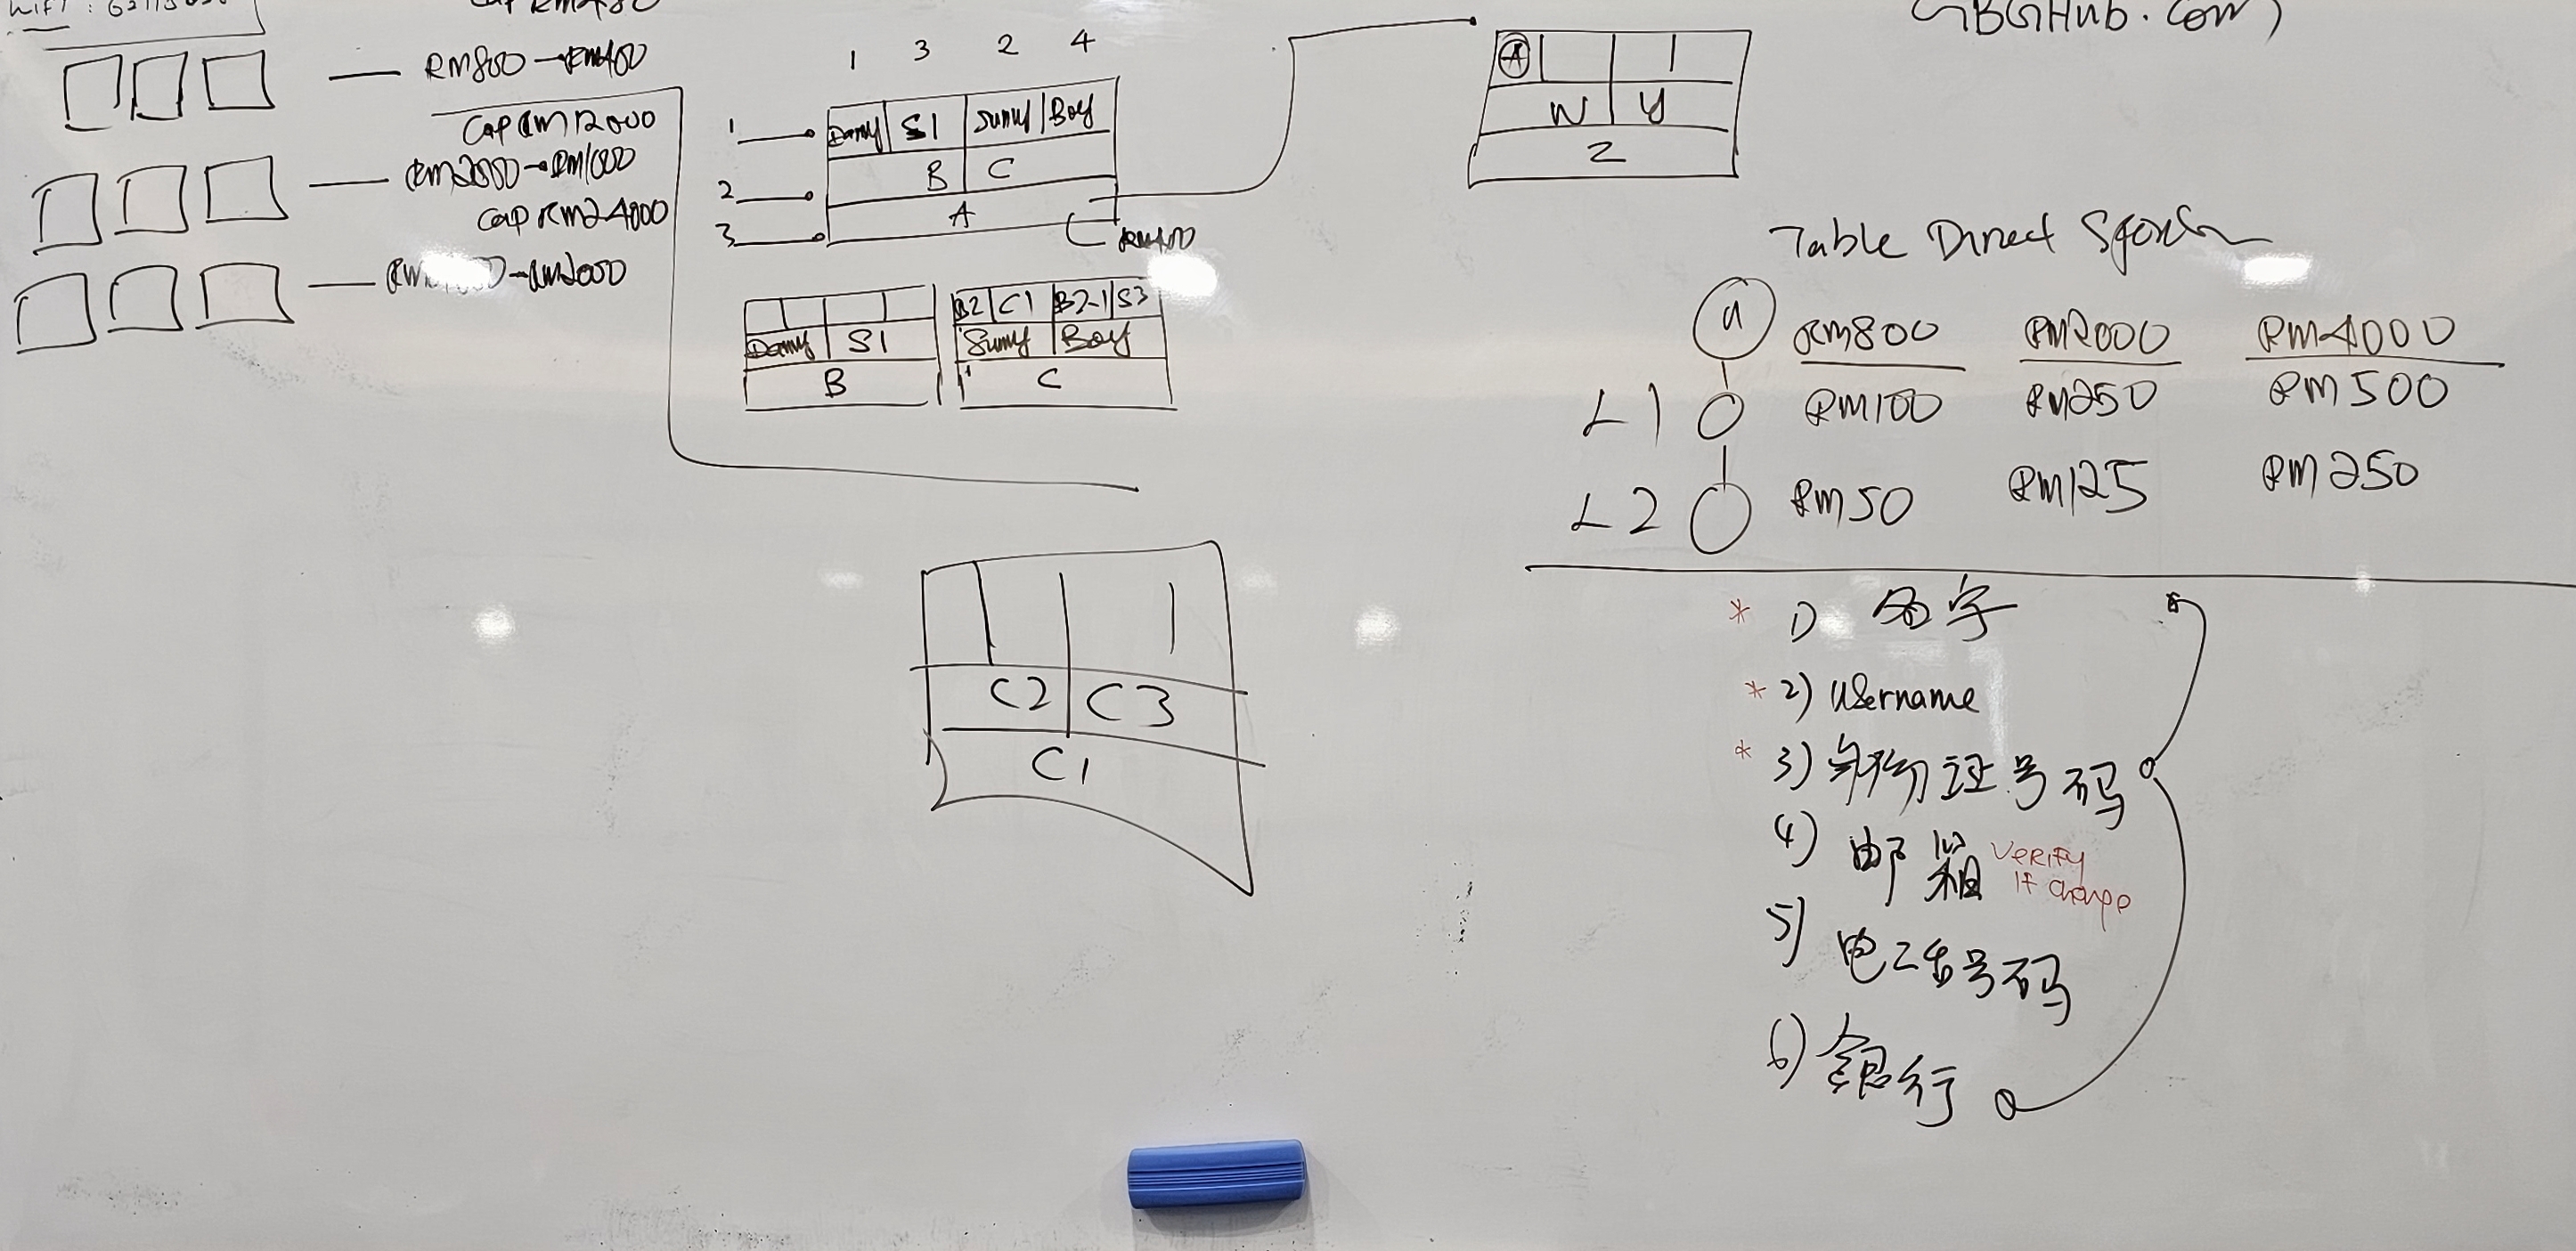 RM800
Cap RM12000
RM2000 → RM1000
Cap RM24000
RM2000
1 3 2 4
1 Danny S1 Sunny Boy
B C
2
A
3
RM400
Danny S1
B
B2 C1 B2-1 S3
Sunny Boy
C
C2 C3
C1
GBGHub.com
A
W Y
Z
Table Direct
RM800 RM2000 RM4000
L1 RM100 RM250 RM500
L2 RM50 RM125 RM250
* 1) 名字
* 2) Username
* 3) 身份证号码
4) 邮箱 VERIFY
If change
5) 电话号码
6) 银行